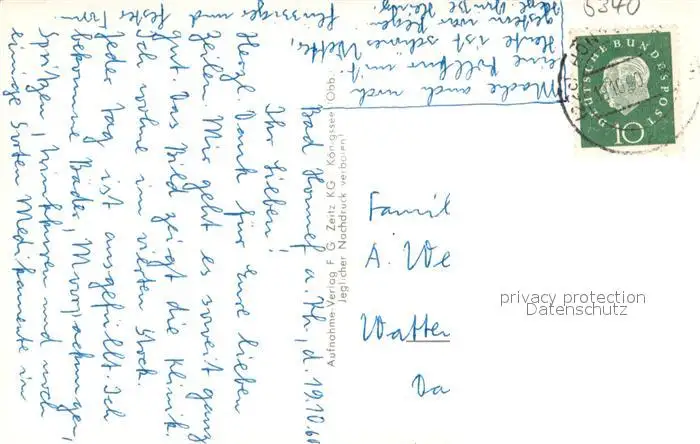 Bad Honnef a. Rh., d. 19.10.60
Ihr Lieben!
Herzl. Dank für Eure lieben
Zeilen. Mir geht es soweit ganz
gut. Das Bild zeigt die Klinik.
Ich wohne im vierten Stock.
Jeder Tag ist ausgefüllt. Ich
bekomme Bäder, Moorpackungen,
Spritzen, Trinkkuren und noch
einige Sorten Medikamente in
flüssiger und fester Form.
Mache auch noch
eine Rollkur mit.
Heute ist schönes Wetter,
gestern war Regen.
Herzl. Grüße
Aufnahme-Verlag F G Zeitz KG Königssee/Obb.
Jeglicher Nachdruck verboten!
5340
DEUTSCHE BUNDESPOST
10
Famil
A. We
Watten
Da
privacy protection
Datenschutz